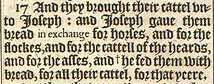 17 And they brought their cattel vn-
to Ioseph: and Ioseph gaue them
bread in exchange for horses, and for the
flockes, and for the cattell of the heards,
and for the asses, and he fed them with
bread, for all their cattel, for that yeere.